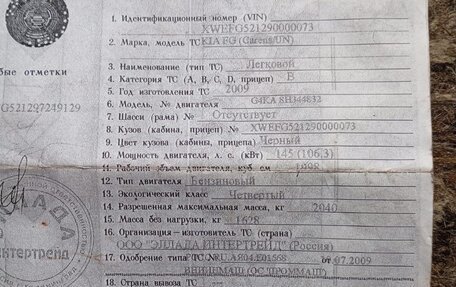 1. Идентификационный номер (VIN)
XWEFG521290000073
2. Марка, модель ТС KIA FG (Carens/UN)
бые отметки
3. Наименование (тип ТС) Легковой
4. Категория ТС (A, B, C, D, прицеп) B
5. Год изготовления ТС 2009
G521297249129
6. Модель, № двигателя G4KA 8H344832
7. Шасси (рама) № Отсутствует
8. Кузов (кабина, прицеп) № XWEFG521290000073
9. Цвет кузова (кабины, прицепа) Черный
10. Мощность двигателя, л. с. (кВт) 145 (106,3)
11. Рабочий объем двигателя, куб. см 1998
12. Тип двигателя Бензиновый
13. Экологический класс Четвертый
14. Разрешенная максимальная масса, кг 2040
15. Масса без нагрузки, кг 1628
16. Организация—изготовитель ТС (страна)
ООО "ЭЛЛАДА ИНТЕРТРЕЙД" (Россия)
интертрейд
17. Одобрение типа ТС № от 07.2009
18. Страна вывоза ТС